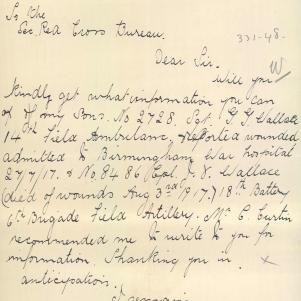 To the
Sec. Red Cross Bureau.
331-48-
Dear Sir.
will you W
kindly get what information you can
of my Sons. No 2728. Sgt. Wallace
14th Field Ambulanc. Reported wounded
admitted to Birmingham War hospital
27/7/17. & No. 8486 Cpl. J. Wallace
(died of wounds Aug 3rd/9/17.) 18th Battery
6th Brigade Field Artillery. Mr C. Curtin
recommended me to write to you for
information. Thanking you in x
anticipation.
I remain